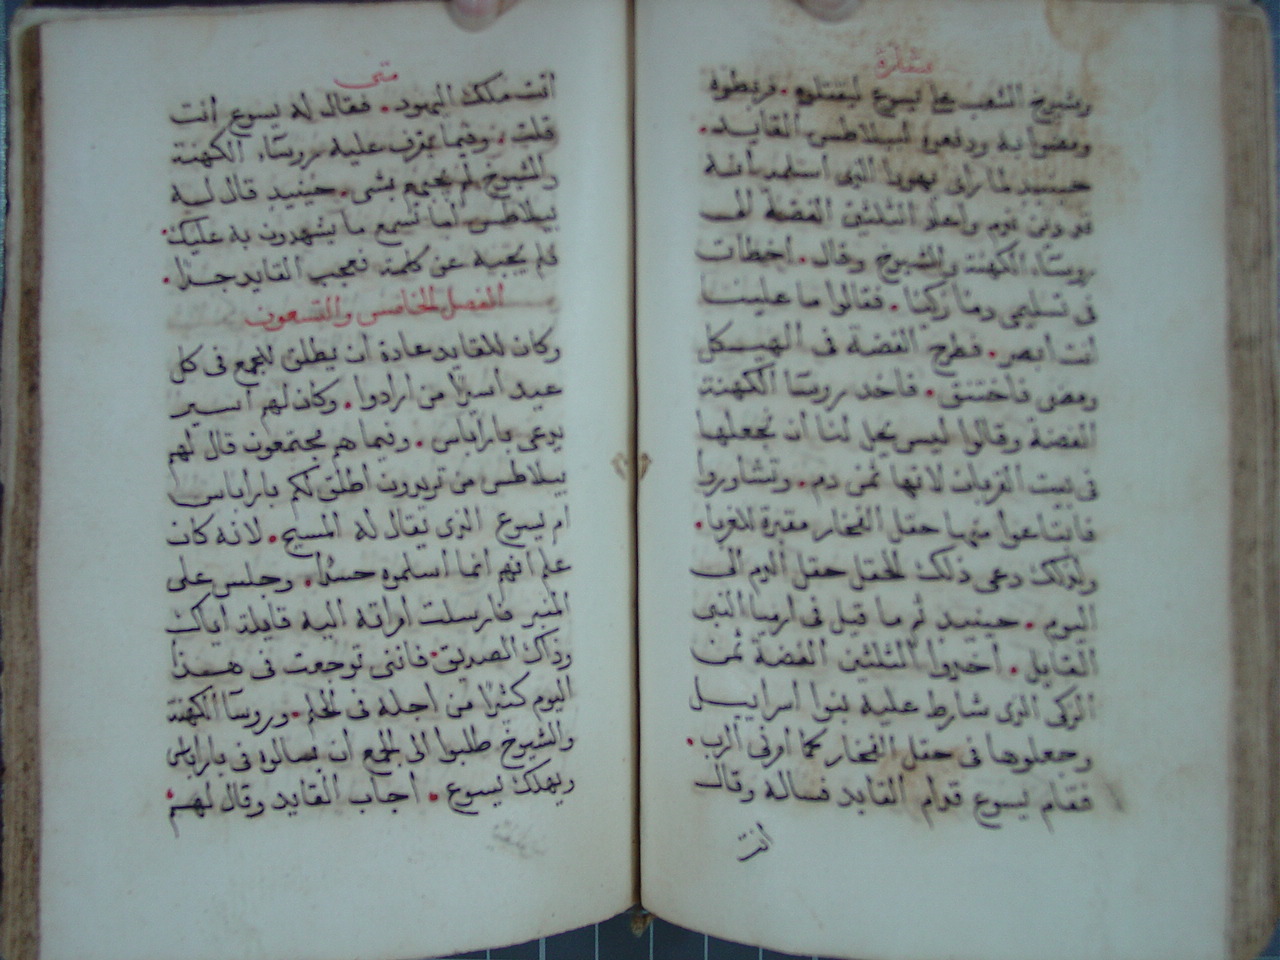 بشارة
وشيوخ الشعب على يسوع ليقتلوه. فربطوه
ومضوا به ودفعوه لبيلاطس القايد.
حينيد لما راى يهودا الذى اسلمه انه
قد دين ندم واعاد الثلثين الفضة الى
روسآء الكهنة والشيوخ وقال. اخطات
فى تسليمى دما زكيا. فقالوا ما علينا
انت ابصر. فطرح الفضة فى الهيكل
ومضى فاختنق. فاخد روسآ الكهنة
الفضة وقالوا ليس يحل لنا ان نجعلها
فى بيت القربان لانها ثمن دم. وتشاوروا
فابتاعوا منها حقل الفخار مقبرة للغربا.
ولذلك دعى ذلك الحقل حقل الدم الى
اليوم. حينيد تم ما قيل فى ارميا النبى
القايل. اخدوا الثلثين الفضة ثمن
الزكى الذى شارط عليه بنوا اسراييل
وجعلوها فى حقل الفخار كما امرنى الرب.
فقام يسوع قدام القايد فساله وقال
انت
متى
انت ملك اليهود. فقال له يسوع انت
قلت. وفيما يقرف عليه روسآء الكهنة
والشيوخ لم يجبهم بشى. حينيد قال له
بيلاطس اما تسمع ما يشهدون به عليك.
فلم يجبه عن كلمة فعجب القايد جدا.
الفصل الخامس والتسعون
وكان للقايد عادة ان يطلق للجمع فى كل
عيد اسيرا من ارادوا. وكان لهم اسير
يدعى باراباس. وفيما هم مجتمعون قال لهم
بيلاطس من تريدون اطلق لكم باراباس
ام يسوع الذى يقال له المسيح. لانه كان
علم انهم انما اسلموه حسدا. وجلس على
المنبر فارسلت امراته اليه قايلة اياك
وذاك الصديق. فاننى توجعت فى هذا
اليوم كثيرا من اجله فى الحلم. وروسآ الكهنة
والشيوخ طلبوا الى الجمع ان يسالوه فى باراباس
ويهلك يسوع. اجاب القايد وقال لهم.